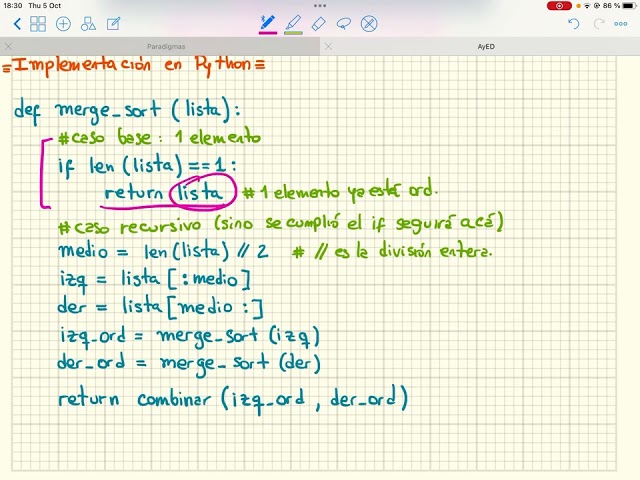 18:30 Thu 5 Oct
86 %
Paradigmas
AyED
=Implementación en Python=
def merge_sort (lista):
#caso base: 1 elemento
if len (lista) == 1:
return lista # 1 elemento ya está ord.
#caso recursivo (sino se cumplió el if seguirá acá)
medio = len(lista) // 2 # // es la división entera.
izq = lista [:medio]
der = lista [medio :]
izq_ord = merge_sort (izq)
der_ord = merge_sort (der)
return combinar (izq_ord , der_ord)